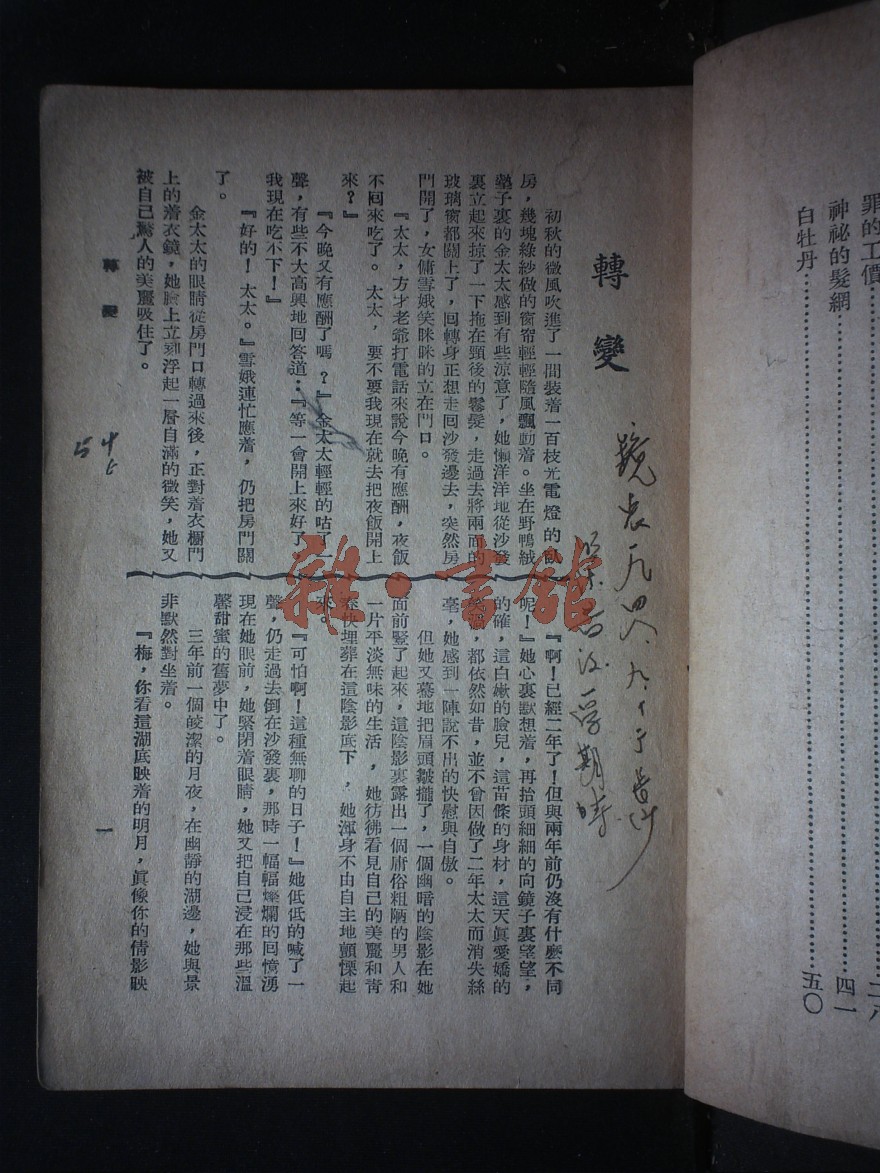 罪的工價
神祕的髮網……………………四一
白牡丹……………………五〇
轉變
初秋的微風吹進了一間裝着一百枝光電燈的臥
房，幾塊綠紗做的窗帘輕輕隨風飄動着。坐在野鴨絨
墊子裏的金太太感到有些涼意了，她懶洋洋地從沙發
裏立起來掠了一下拖在頸後的鬈髮，走過去將兩面的
玻璃窗都關上了，回轉身正想走回沙發邊去，突然房
門開了，女傭雪娥笑眯眯的立在門口。
『太太，方才老爺打電話來說今晚有應酬，夜飯
不回來吃了。太太，要不要我現在就去把夜飯開上
來？』
『今晚又有應酬了嗎？』金太太輕輕的咕了一
聲，有些不大高興地回答道：『等一會開上來好了。
我現在吃不下！』
『好的！太太。』雪娥連忙應着，仍把房門關
了。
金太太的眼睛從房門口轉過來後，正對着衣櫥門
上的着衣鏡，她臉上立刻浮起一層自滿的微笑，她又
被自己驚人的美麗吸住了。
『啊！已經二年了！但與兩年前仍沒有什麽不同
呢！』她心裏默想着，再抬頭細細的向鏡子裏望望，
的確，這白嫩的臉兒，這苗條的身材，這天眞愛嬌的
都依然如昔，並不曾因做了二年太太而消失絲
毫，她感到一陣說不出的快慰與自傲。
但她又驀地把眉頭皺攏了，一個幽暗的陰影在她
面前豎了起來，這陰影裏露出一個庸俗粗陋的男人和
一片平淡無味的生活，她彷彿看見自己的美麗和青
春快埋葬在這陰影底下，她渾身不由自主地顫慄起
來。
『可怕啊！這種無聊的日子！』她低低的喊了一
聲，仍走過去倒在沙發裏，那時一幅幅燦爛的回憶湧
現在她眼前，她緊閉着眼睛，她又把自己浸在那些溫
馨甜蜜的舊夢中了。
三年前一個皎潔的月夜，在幽靜的湖邊，她與景
非默然對坐着。
『梅，你看這湖底映着的明月，眞像你的倩影映
轉變
一
雜·書館